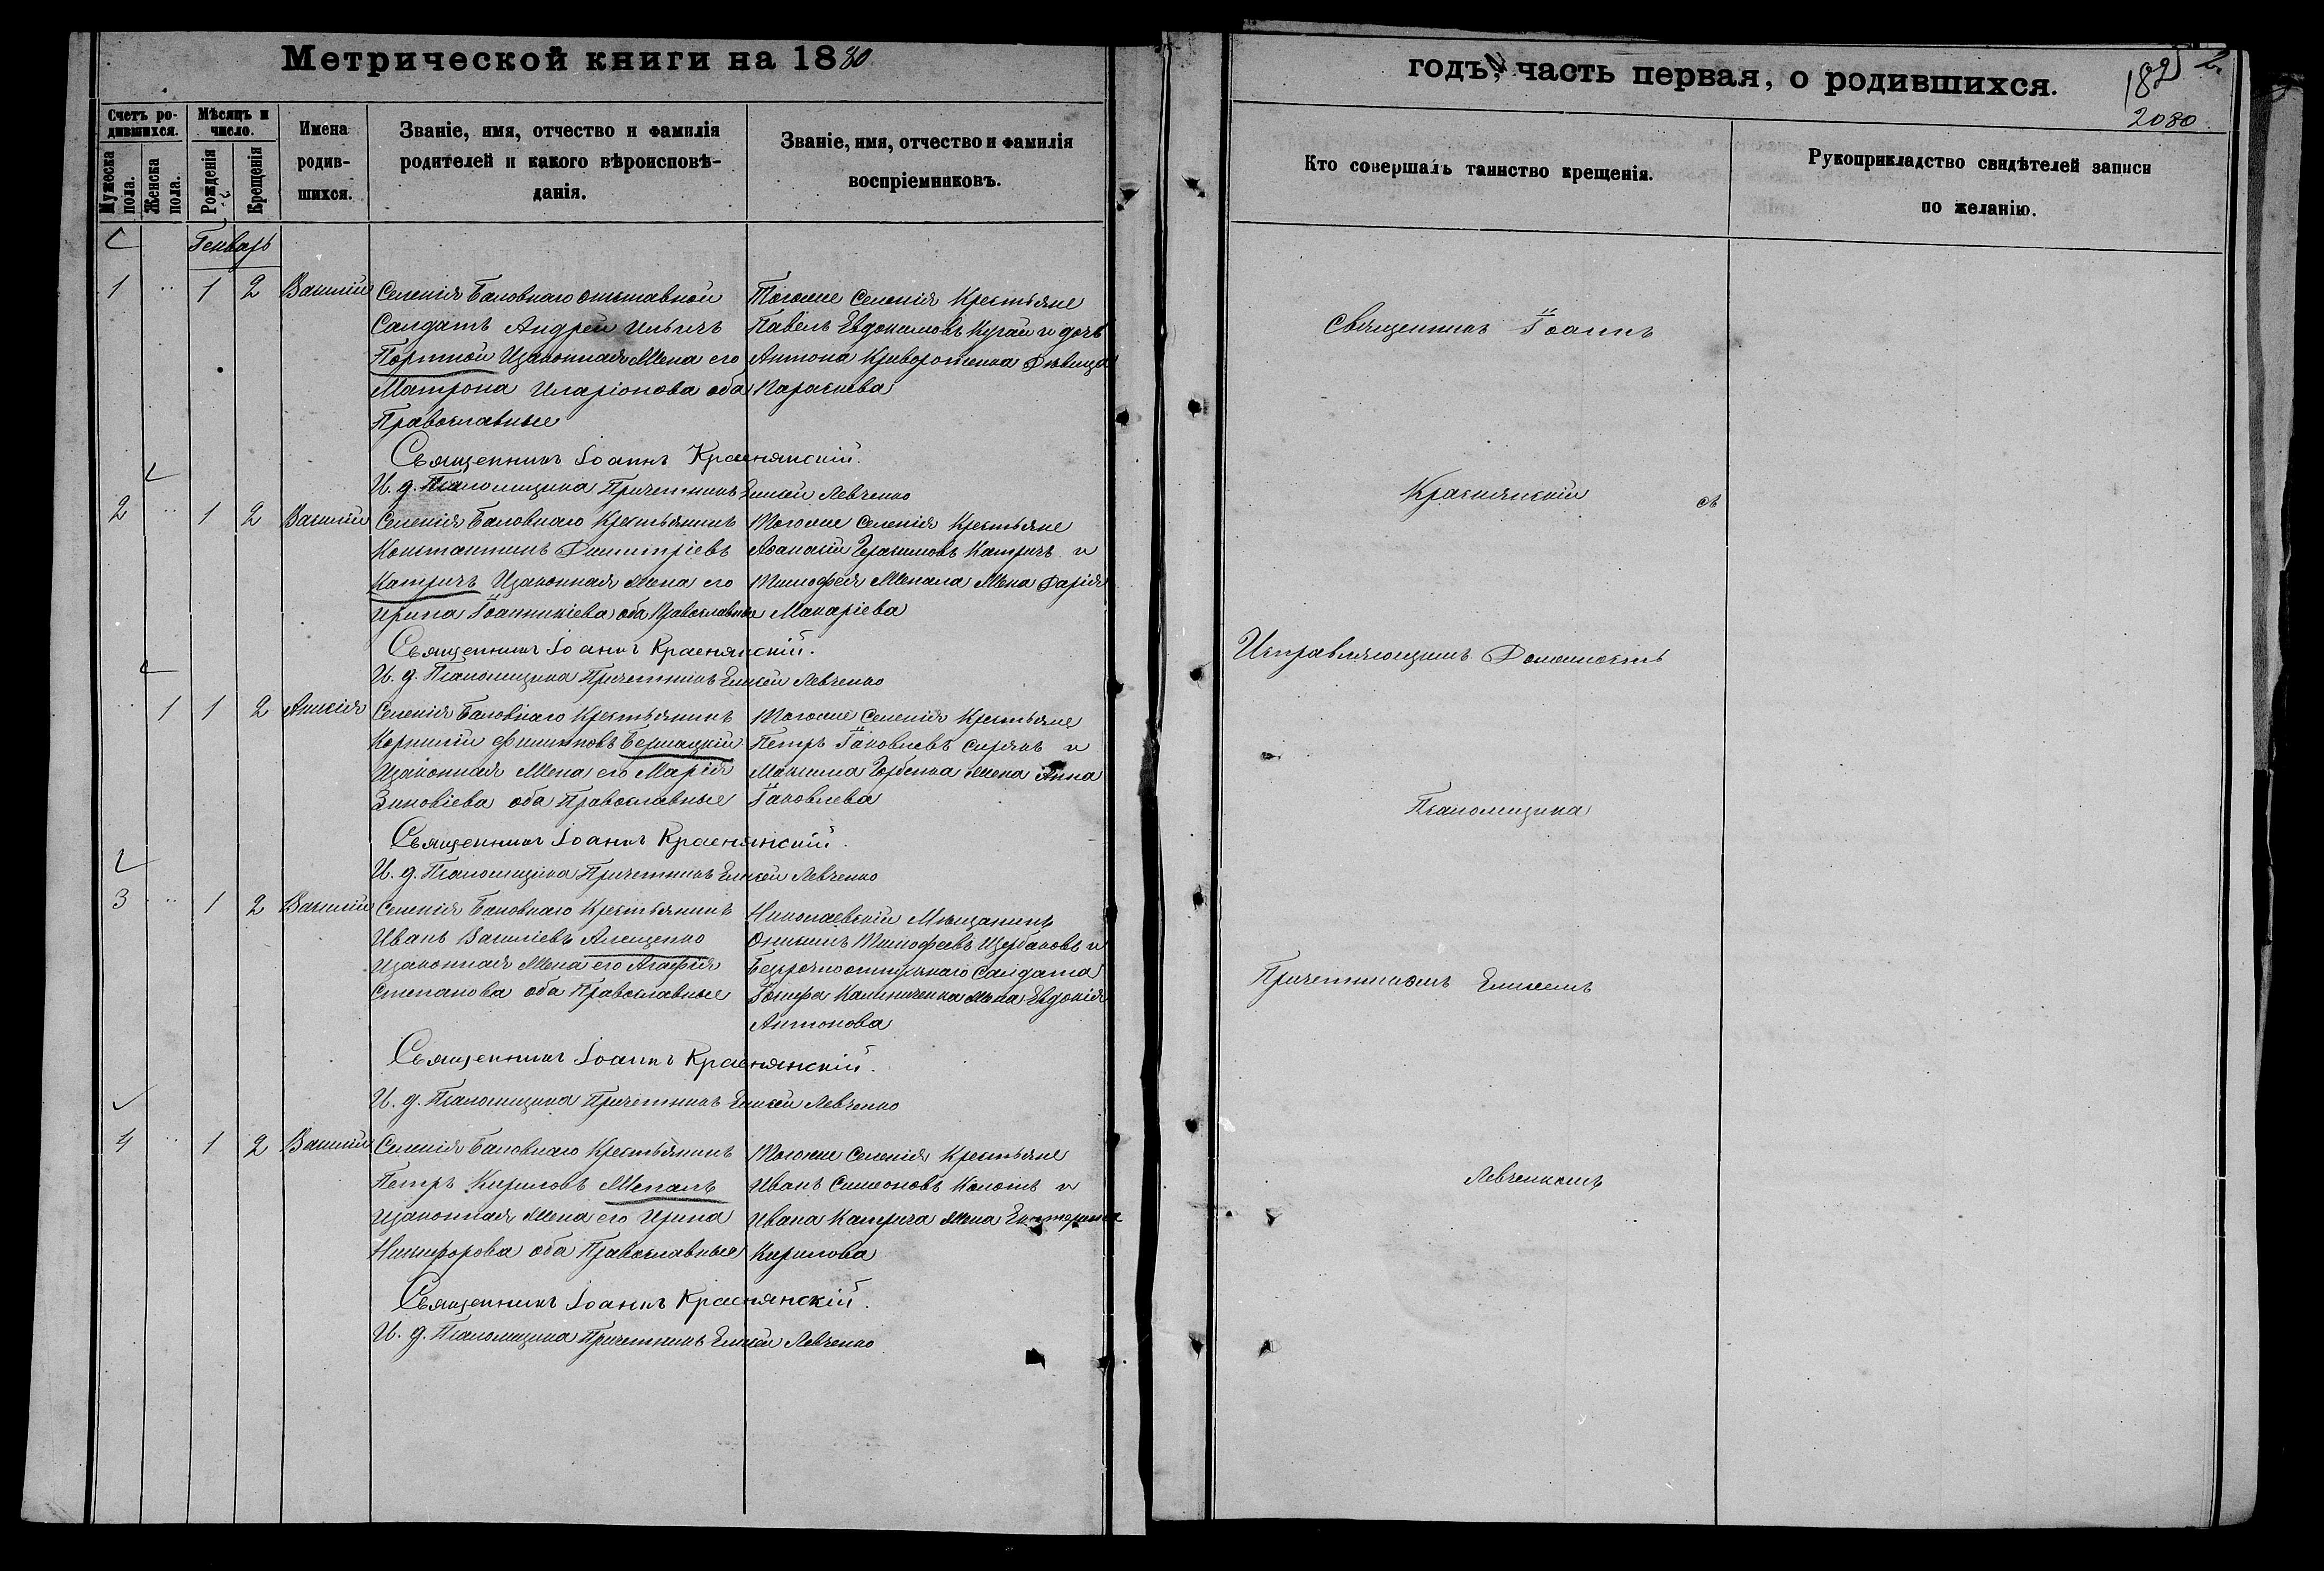 Метрической книги на 1880
Счетъ ро-
дившихся.
Мѣсяцъ и
число.
Мужеска
пола.
Женска
пола.
Рожденія
Крещенія
Имена
родив-
шихся.
Званіе, имя, отчество и фамилія
родителей и какого вѣроисповѣ-
данія.
Званіе, имя, отчество и фамилія
воспріемниковъ.
Генварь
1 1 2 Василій
Селенія Баловнаго отставной
Салдатъ Андрей Ильичъ
Портной Изаконная Жена его
Матрона Иларіонова оба
Православные
Тогоже Селенія Крестьяне
Павелъ Евдокимовъ Кугай и дочь
Антона Криворотенка Дѣвица
Параскева
Священникъ Іоаннъ Краснянскій.
И. д. Псаломщика Причетникъ Елисей Левченко
2 1 2 Василій
Селенія Баловнаго Крестьянинъ
Константинъ Димитріевъ
Катричъ Изаконная жена его
Ирина Іоанникіева оба Православные
Тогоже Селенія Крестьяне
Афанасій Герасимовъ Катричъ и
Тимофея Шепала Жена Дарія
Макаріева
Священникъ Іоаннъ Краснянскій.
И. д. Псаломщика Причетникъ Елисей Левченко
1 1 2 Анисія
Селенія Баловнаго Крестьянинъ
Корнилій Филиповъ Бершацкій
Изаконная Жена его Марія
Зиновіева оба Православные
Тогоже Селенія Крестьяне
Петръ Іаковлевъ Сирякъ и
Максима Горбенка жена Анна
Іаковлева
Священникъ Іоаннъ Краснянскій.
И. д. Псаломщика Причетникъ Елисей Левченко
3 1 2 Василій
Селенія Баловнаго Крестьянинъ
Иванъ Василіевъ Алещенко
Изаконная Жена его Агафія
Степанова оба Православные
Николаевскій Мѣщанинъ
Онисимъ Тимофеевъ Щербаковъ и
Безсрочноотпускнаго Салдата
Іосифа Калиниченка Жена Евдокія
Антонова
Священникъ Іоаннъ Краснянскій.
И. д. Псаломщика Причетникъ Елисей Левченко
4 1 2 Василій
Селенія Баловнаго Крестьянинъ
Петръ Кириловъ Шепалъ
Изаконная Жена его Ирина
Никифорова оба Православные
Тогоже Селенія Крестьяне
Иванъ Симеоновъ и
Ивана Катрича Жена Екатерина
Кирилова
Священникъ Іоаннъ Краснянскій.
И. д. Псаломщика Причетникъ Елисей Левченко
годъ, часть первая, о родившихся.
1825
2080
Кто совершалъ таинство крещенія.
Рукоприкладство свидѣтелей записи
по желанію.
Священникъ Іоаннъ
Краснянскій съ
Исправляющимъ Должность
Псаломщика
Причетникомъ Елисеемъ
Левченкомъ